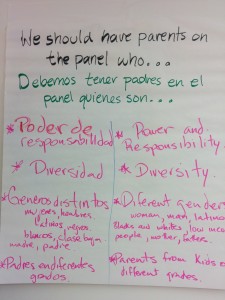 We should have parents on
the panel who...
Debemos tener padres en el
panel quiénes son...
* Poder de
responsabilidad
* Diversidad
* Géneros distintos
mujeres, hombres
Latinos, negros
blancos, clase baja
madre, padre
* Padres en diferentes
grados
* Power and
Responsibility.
* Diversity.
* Diferent genders
woman, man, latinos
Blacks and whites, low income
people, mother, fathers.
* Parents from Kids
different grades.